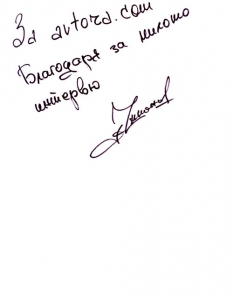 За avtora.com
Благодаря за милото
интервю